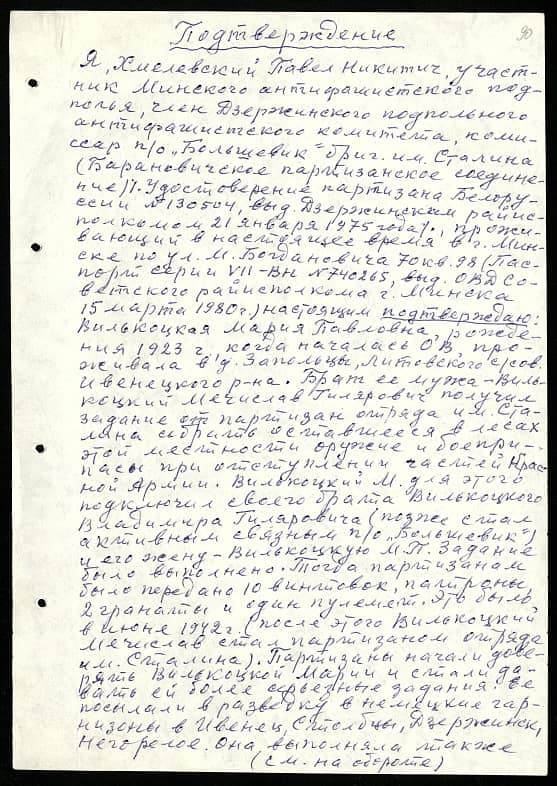 90
Подтверждение
Я, Хмелевский Павел Никитич, участ-
ник Минского антифашистского под-
полья, член Дзержинского подпольного
антифашистского комитета, коми-
ссар п/о „Большевик" бриг. им. Сталина
(Барановичское партизанское соедине-
ние)/. Удостоверение партизана Белору-
ссии №130504, выд. Дзержинским райис-
полкомом 21 января 1975 года/., прожи-
вающий в настоящее время в г. Мин-
ске по ул. М. Богдановича 70 кв. 98 (Пас-
порт серии VII-ВН №740265, выд. ОВД Со-
ветского райисполкома г. Минска
15 марта 1980г.) настоящим подтверждаю:
Вилькоцкая Мария Павловна, рожде-
ния 1923 г., когда началась ОВ, про-
живала в д. Запольцы, Литовского с/сов.
Ивенецкого р-на. Брат ее мужа – Виль-
коцкий Мечислав Гилярович получил
задание от партизан отряда им. Ста-
лина собрать оставшееся в лесах
этой местности оружие и боепри-
пасы при отступлении частей Крас-
ной Армии. Вилькоцкий М. для этого
подключил своего брата Вилькоцкого
Владимира Гиляровича (позже стал
активным связным п/о „Большевик")
и его жену – Вилькоцкую М.П. Задание
было выполнено. Тогда партизанам
было передано 10 винтовок, патроны,
2 гранаты и один пулемет. Это было
в июне 1942г. (после этого Вилькоцкий
Мечислав стал партизаном отряда
им. Сталина). Партизаны начали дове-
рять Вилькоцкой Марии и стали да-
вать ей более серьезные задания: ее
посылали в разведку в немецкие гар-
низоны в Ивенец, Столбцы, Дзержинск,
Негорелое. Она выполняла также
(см. на обороте)